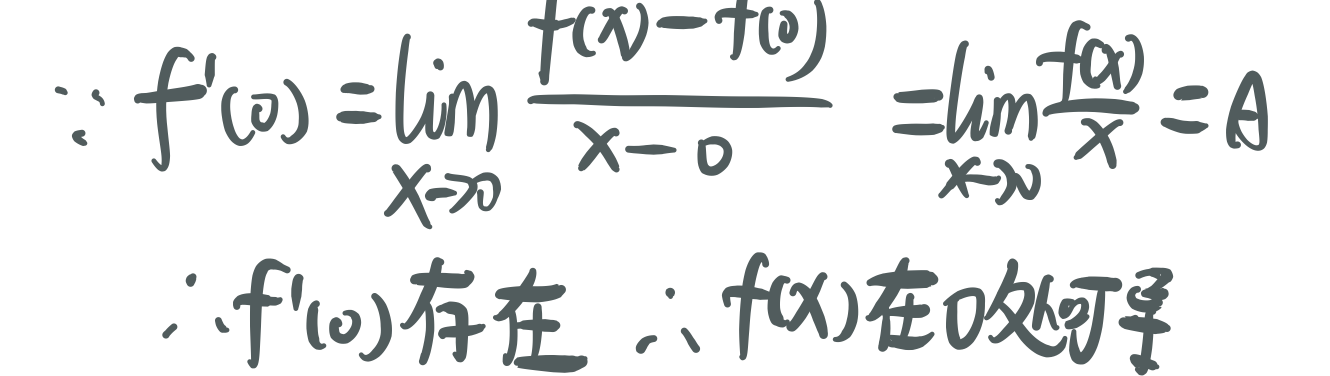 ∵ f'(0) = lim_{x→0} (f(x)-f(0))/(x-0) = lim_{x→0} f(x)/x = A
∴ f'(0)存在 ∴ f(x)在0处可导